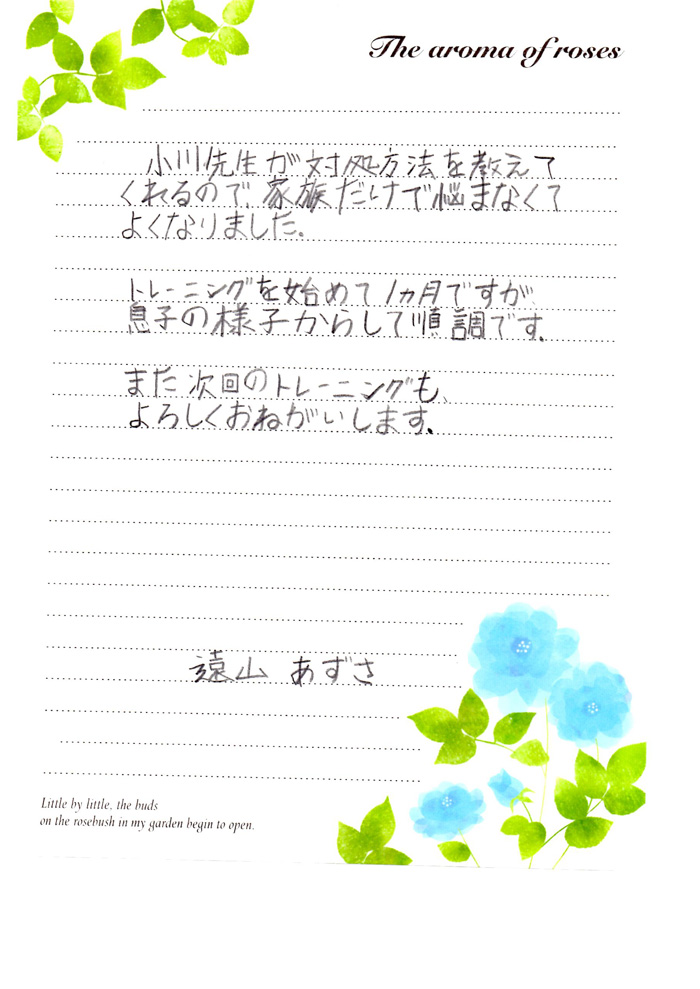 The aroma of roses
小川先生が対処方法を教えて
くれるので、家族だけで悩まなくて
よくなりました。
トレーニングを始めて1ヵ月ですが、
息子の様子からして順調です。
また次回のトレーニングも、
よろしくおねがいします。
遠山 あずさ
Little by little, the buds
on the rosebush in my garden begin to open.